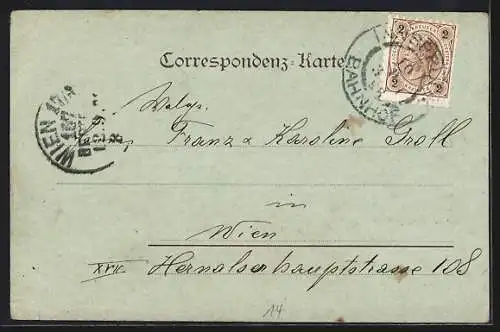 Correspondenz-Karte.
2 2
2 2
BAHNHOF
WIEN
Franz & Karoline Groll
in
Wien
XVII. Hernalserhauptstrasse 108
14